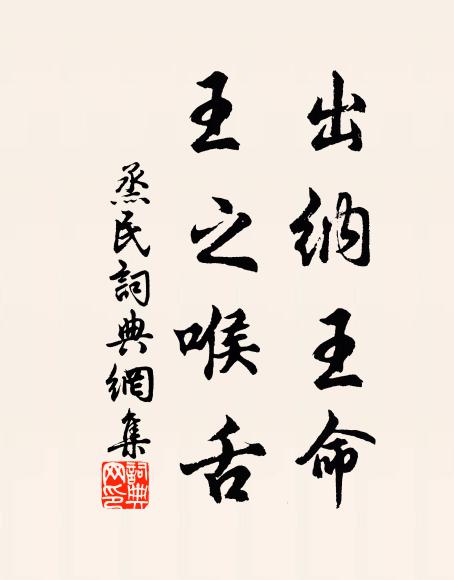 出纳王命
王之喉舌
烝民詞典網集
詞典网印